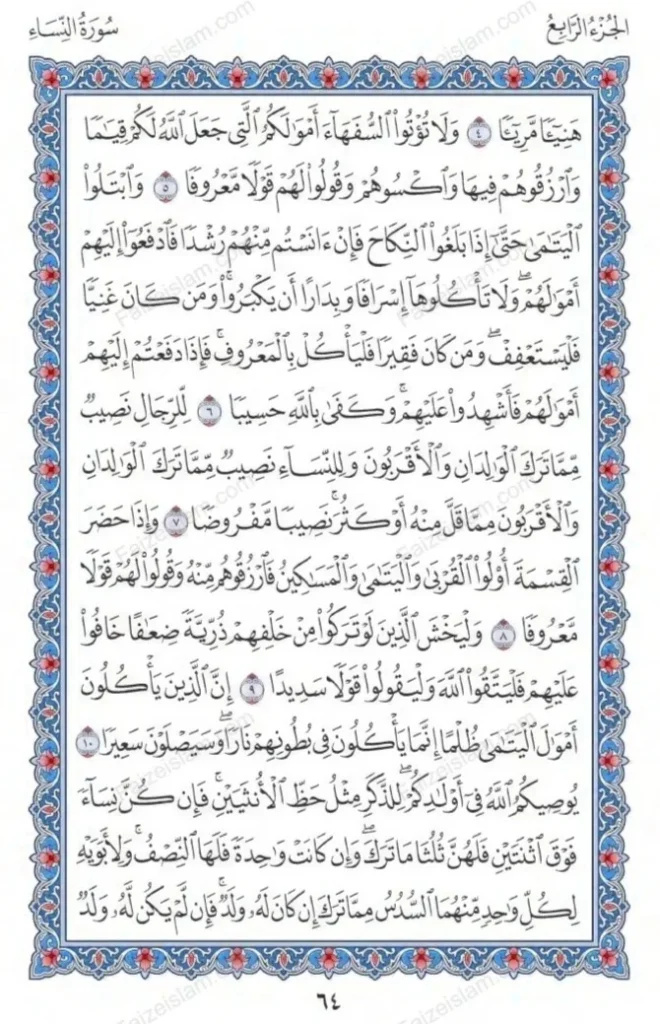 الجُزْءُ الرَّابِعُ سُورَةُ النِّسَاءِ
هَنِيٓـًٔا مَّرِيٓـًٔا ٤ وَلَا تُؤْتُوا۟ ٱلسُّفَهَآءَ أَمْوَٰلَكُمُ ٱلَّتِى جَعَلَ ٱللَّهُ لَكُمْ قِيَـٰمًا
وَٱرْزُقُوهُمْ فِيهَا وَٱكْسُوهُمْ وَقُولُوا۟ لَهُمْ قَوْلًا مَّعْرُوفًا ٥ وَٱبْتَلُوا۟
ٱلْيَتَـٰمَىٰ حَتَّىٰٓ إِذَا بَلَغُوا۟ ٱلنِّكَاحَ فَإِنْ ءَانَسْتُم مِّنْهُمْ رُشْدًا فَٱدْفَعُوٓا۟ إِلَيْهِمْ
أَمْوَٰلَهُمْ ۖ وَلَا تَأْكُلُوهَآ إِسْرَافًا وَبِدَارًا أَن يَكْبَرُوا۟ ۚ وَمَن كَانَ غَنِيًّا
فَلْيَسْتَعْفِفْ ۖ وَمَن كَانَ فَقِيرًا فَلْيَأْكُلْ بِٱلْمَعْرُوفِ ۚ فَإِذَا دَفَعْتُمْ إِلَيْهِمْ
أَمْوَٰلَهُمْ فَأَشْهِدُوا۟ عَلَيْهِمْ ۚ وَكَفَىٰ بِٱللَّهِ حَسِيبًا ٦ لِّلرِّجَالِ نَصِيبٌ
مِّمَّا تَرَكَ ٱلْوَٰلِدَانِ وَٱلْأَقْرَبُونَ وَلِلنِّسَآءِ نَصِيبٌ مِّمَّا تَرَكَ ٱلْوَٰلِدَانِ
وَٱلْأَقْرَبُونَ مِمَّا قَلَّ مِنْهُ أَوْ كَثُرَ ۚ نَصِيبًا مَّفْرُوضًا ٧ وَإِذَا حَضَرَ
ٱلْقِسْمَةَ أُو۟لُوا۟ ٱلْقُرْبَىٰ وَٱلْيَتَـٰمَىٰ وَٱلْمَسَـٰكِينُ فَٱرْزُقُوهُم مِّنْهُ وَقُولُوا۟ لَهُمْ قَوْلًا
مَّعْرُوفًا ٨ وَلْيَخْشَ ٱلَّذِينَ لَوْ تَرَكُوا۟ مِنْ خَلْفِهِمْ ذُرِّيَّةً ضِعَـٰفًا خَافُوا۟
عَلَيْهِمْ فَلْيَتَّقُوا۟ ٱللَّهَ وَلْيَقُولُوا۟ قَوْلًا سَدِيدًا ٩ إِنَّ ٱلَّذِينَ يَأْكُلُونَ
أَمْوَٰلَ ٱلْيَتَـٰمَىٰ ظُلْمًا إِنَّمَا يَأْكُلُونَ فِى بُطُونِهِمْ نَارًا ۖ وَسَيَصْلَوْنَ سَعِيرًا ١٠
يُوصِيكُمُ ٱللَّهُ فِىٓ أَوْلَـٰدِكُمْ ۖ لِلذَّكَرِ مِثْلُ حَظِّ ٱلْأُنثَيَيْنِ ۚ فَإِن كُنَّ نِسَآءً
فَوْقَ ٱثْنَتَيْنِ فَلَهُنَّ ثُلُثَا مَا تَرَكَ ۖ وَإِن كَانَتْ وَٰحِدَةً فَلَهَا ٱلنِّصْفُ ۚ وَلِأَبَوَيْهِ
لِكُلِّ وَٰحِدٍ مِّنْهُمَا ٱلسُّدُسُ مِمَّا تَرَكَ إِن كَانَ لَهُۥ وَلَدٌ ۚ فَإِن لَّمْ يَكُن لَّهُۥ وَلَدٌ
٦٤
Faizeislam.com